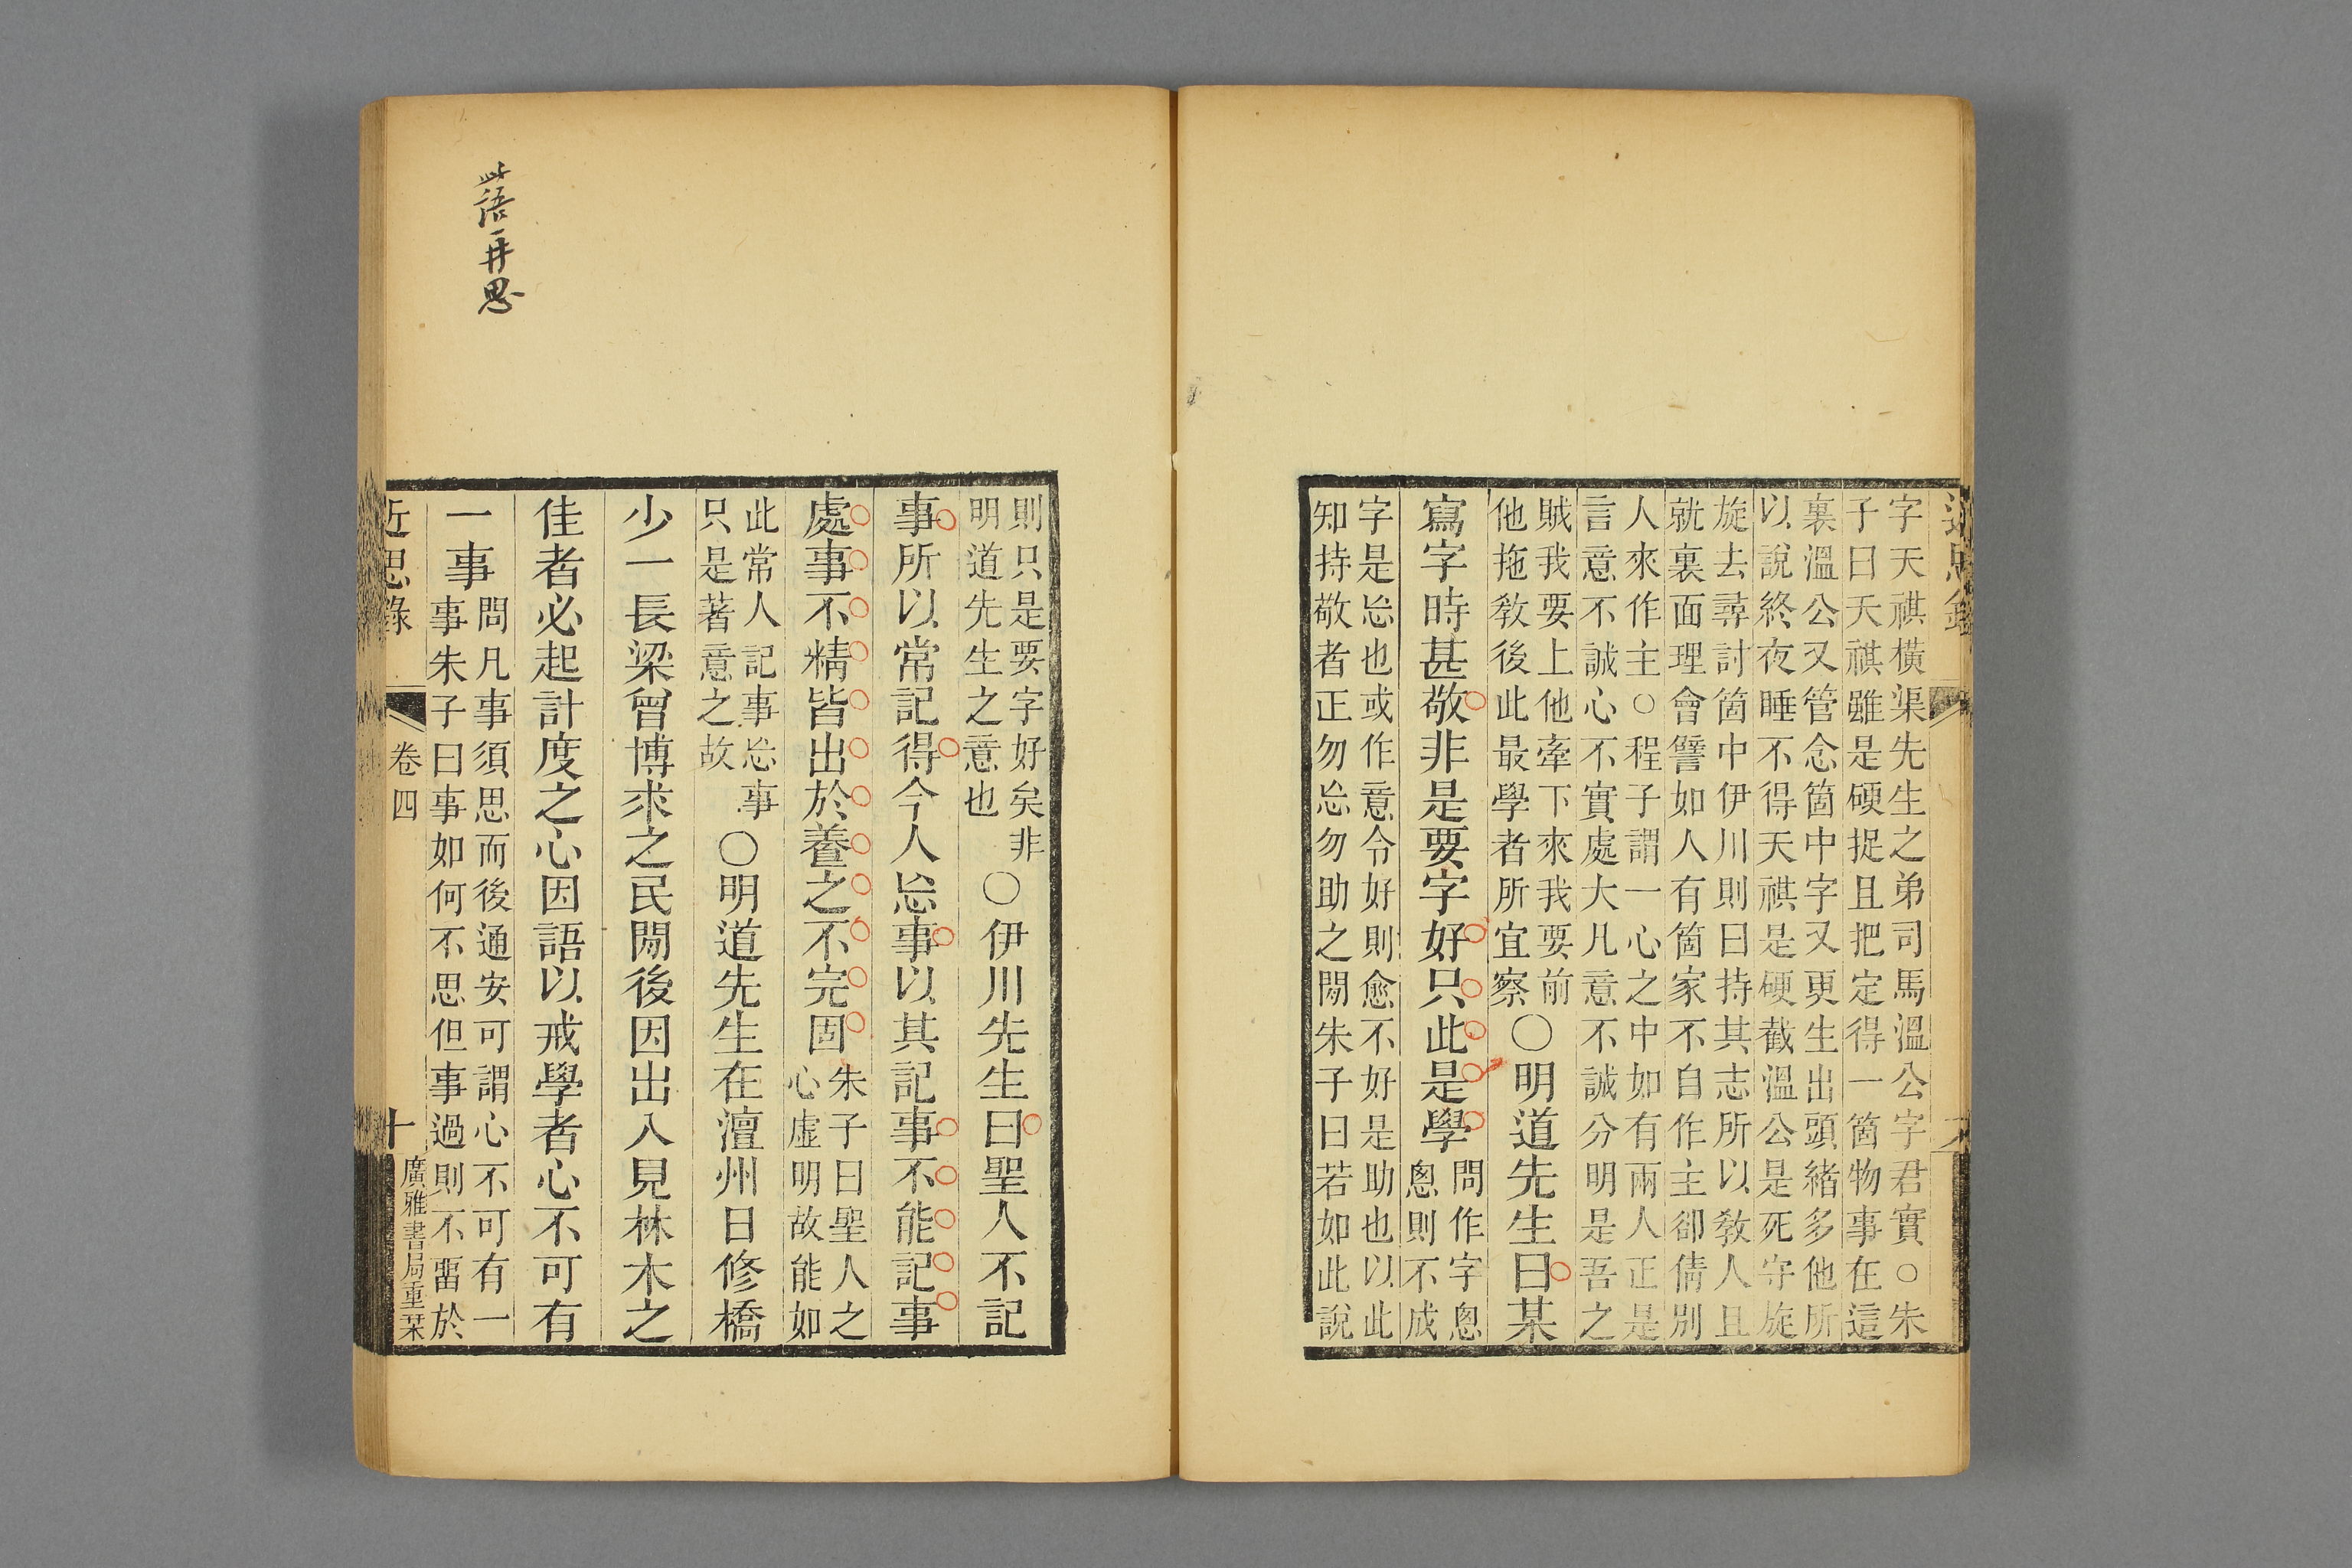 字天祺橫渠先生之弟司馬溫公字君實○朱
子曰天祺雖是硬捉且把定得一箇物事在這
裏溫公又管念箇中字又更生出頭緒多他所
以說終夜睡不得天祺是硬截溫公是死守旋
旋去尋討箇中伊川則曰持其志所以教人且
就裏面理會譬如人有箇家不自作主卻倩別
人來作主○程子謂一心之中如有兩人正是
言意不誠心不實處大凡意不誠分明是吾之
賊我要上他牽下來我要前
他拖教後此最學者所宜察
○明道先生曰某
寫字時甚敬非是要字好只此是學
問作字悤悤
則不成
字是忩也或作意令好則愈不好是助也以此
知持敬者正勿忩勿助之閒朱子曰若如此說
則只是要字好矣非
明道先生之意也
○伊川先生曰聖人不記
事所以常記得今人忩事以其記事不能記事
處事不精皆出於養之不完固
朱子曰聖人之
心虛明故能如
此常人記事忩事
只是著意之故
○明道先生在澶州日修橋
少一長梁曾博求之民閒後因出入見林木之
佳者必起計度之心因語以戒學者心不可有
一事
問凡事須思而後通安可謂心不可有一
事朱子曰事如何不思但事過則不畱於
近思錄
卷四
十
廣雅書局重栞
此語再思